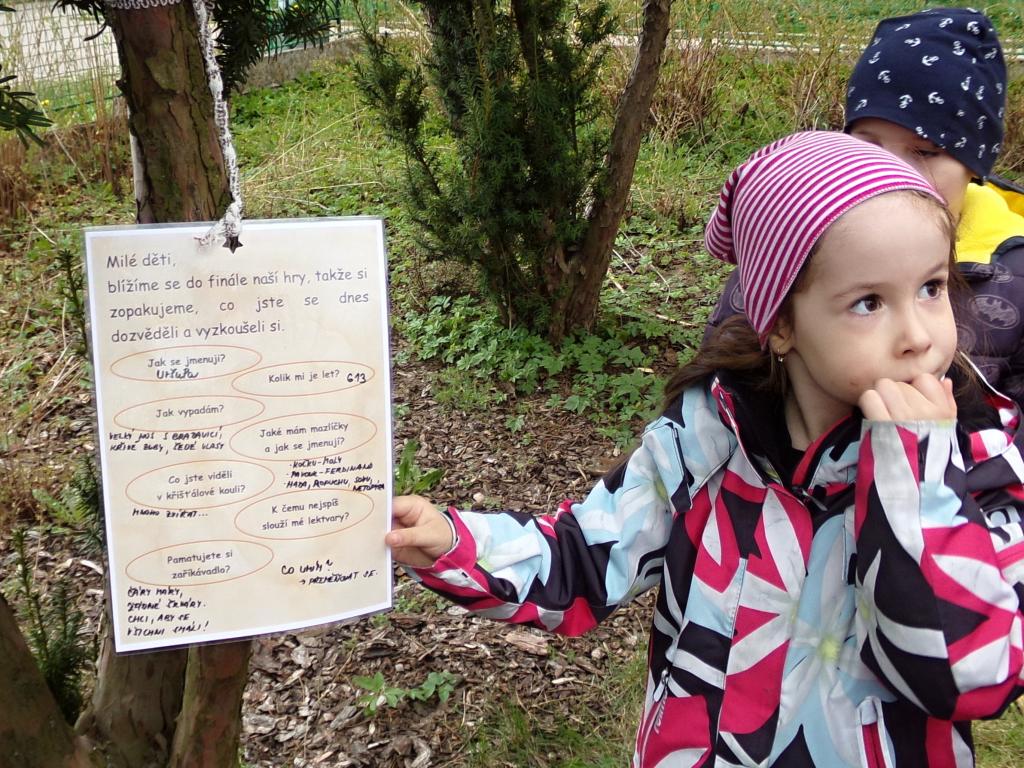 Milé děti,
blížíme se do finále naší hry, takže si
zopakujeme, co jste se dnes
dozvěděli a vyzkoušeli si.
Jak se jmenuji?
Kolik mi je let? 613
Jak vypadám?
VELKÝ NOS S BRADAVICÍ,
KŘIVÉ ZUBY, ŠEDÉ VLASY
Jaké mám mazlíčky
a jak se jmenují?
- KOČKU-
- PAVOUK-FERDINAND
- HADA, ROPUCHU, SOVU,
NETOPÝRA
Co jste viděli
v křišťálové kouli?
MNOHO ZVÍŘAT...
K čemu nejspíš
slouží mé lektvary?
Pamatujete si
zaříkávadlo?
CO UMÍM?
→ PŘEMĚŇOVAT SE.
ČÁRY MÁRY,
ČMÁRY.
CHCI, ABY SE
VŠICHNI SMÁLI!